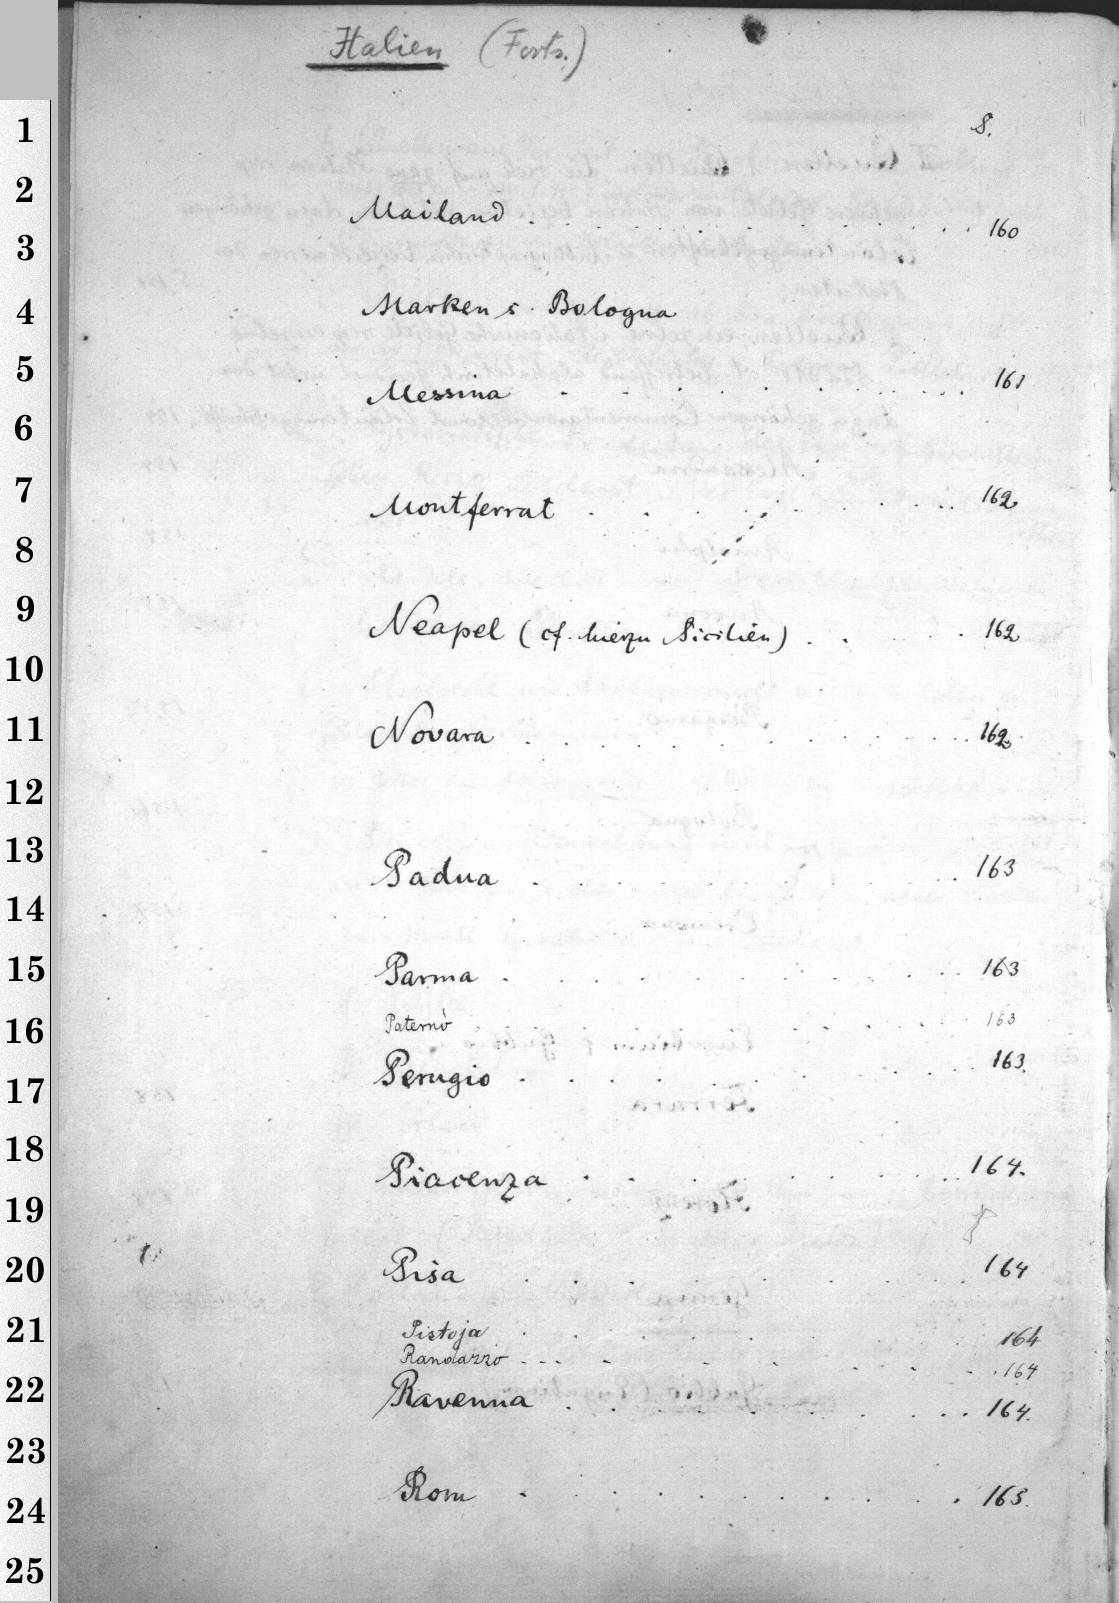 Italien (Forts.)
S.
Mailand . . . . . . . . . . 160
Marken s. Bologna
Messina . . . . . . . . . . 161
Montferrat . . . . . . . . . 162
Neapel (cf. hierzu Sicilien) . . . . . 162
Novara . . . . . . . . . . 162
Padua . . . . . . . . . . 163
Parma . . . . . . . . . . 163
Paternò . . . . . . . . . . 163
Perugio . . . . . . . . . . 163.
Piacenza . . . . . . . . . . 164.
Pisa . . . . . . . . . . 164
Pistoja . . . . . . . . . . 164
Randazzo . . . . . . . . . . 164
Ravenna . . . . . . . . . . 164.
Rom . . . . . . . . . . 165.
1
2
3
4
5
6
7
8
9
10
11
12
13
14
15
16
17
18
19
20
21
22
23
24
25